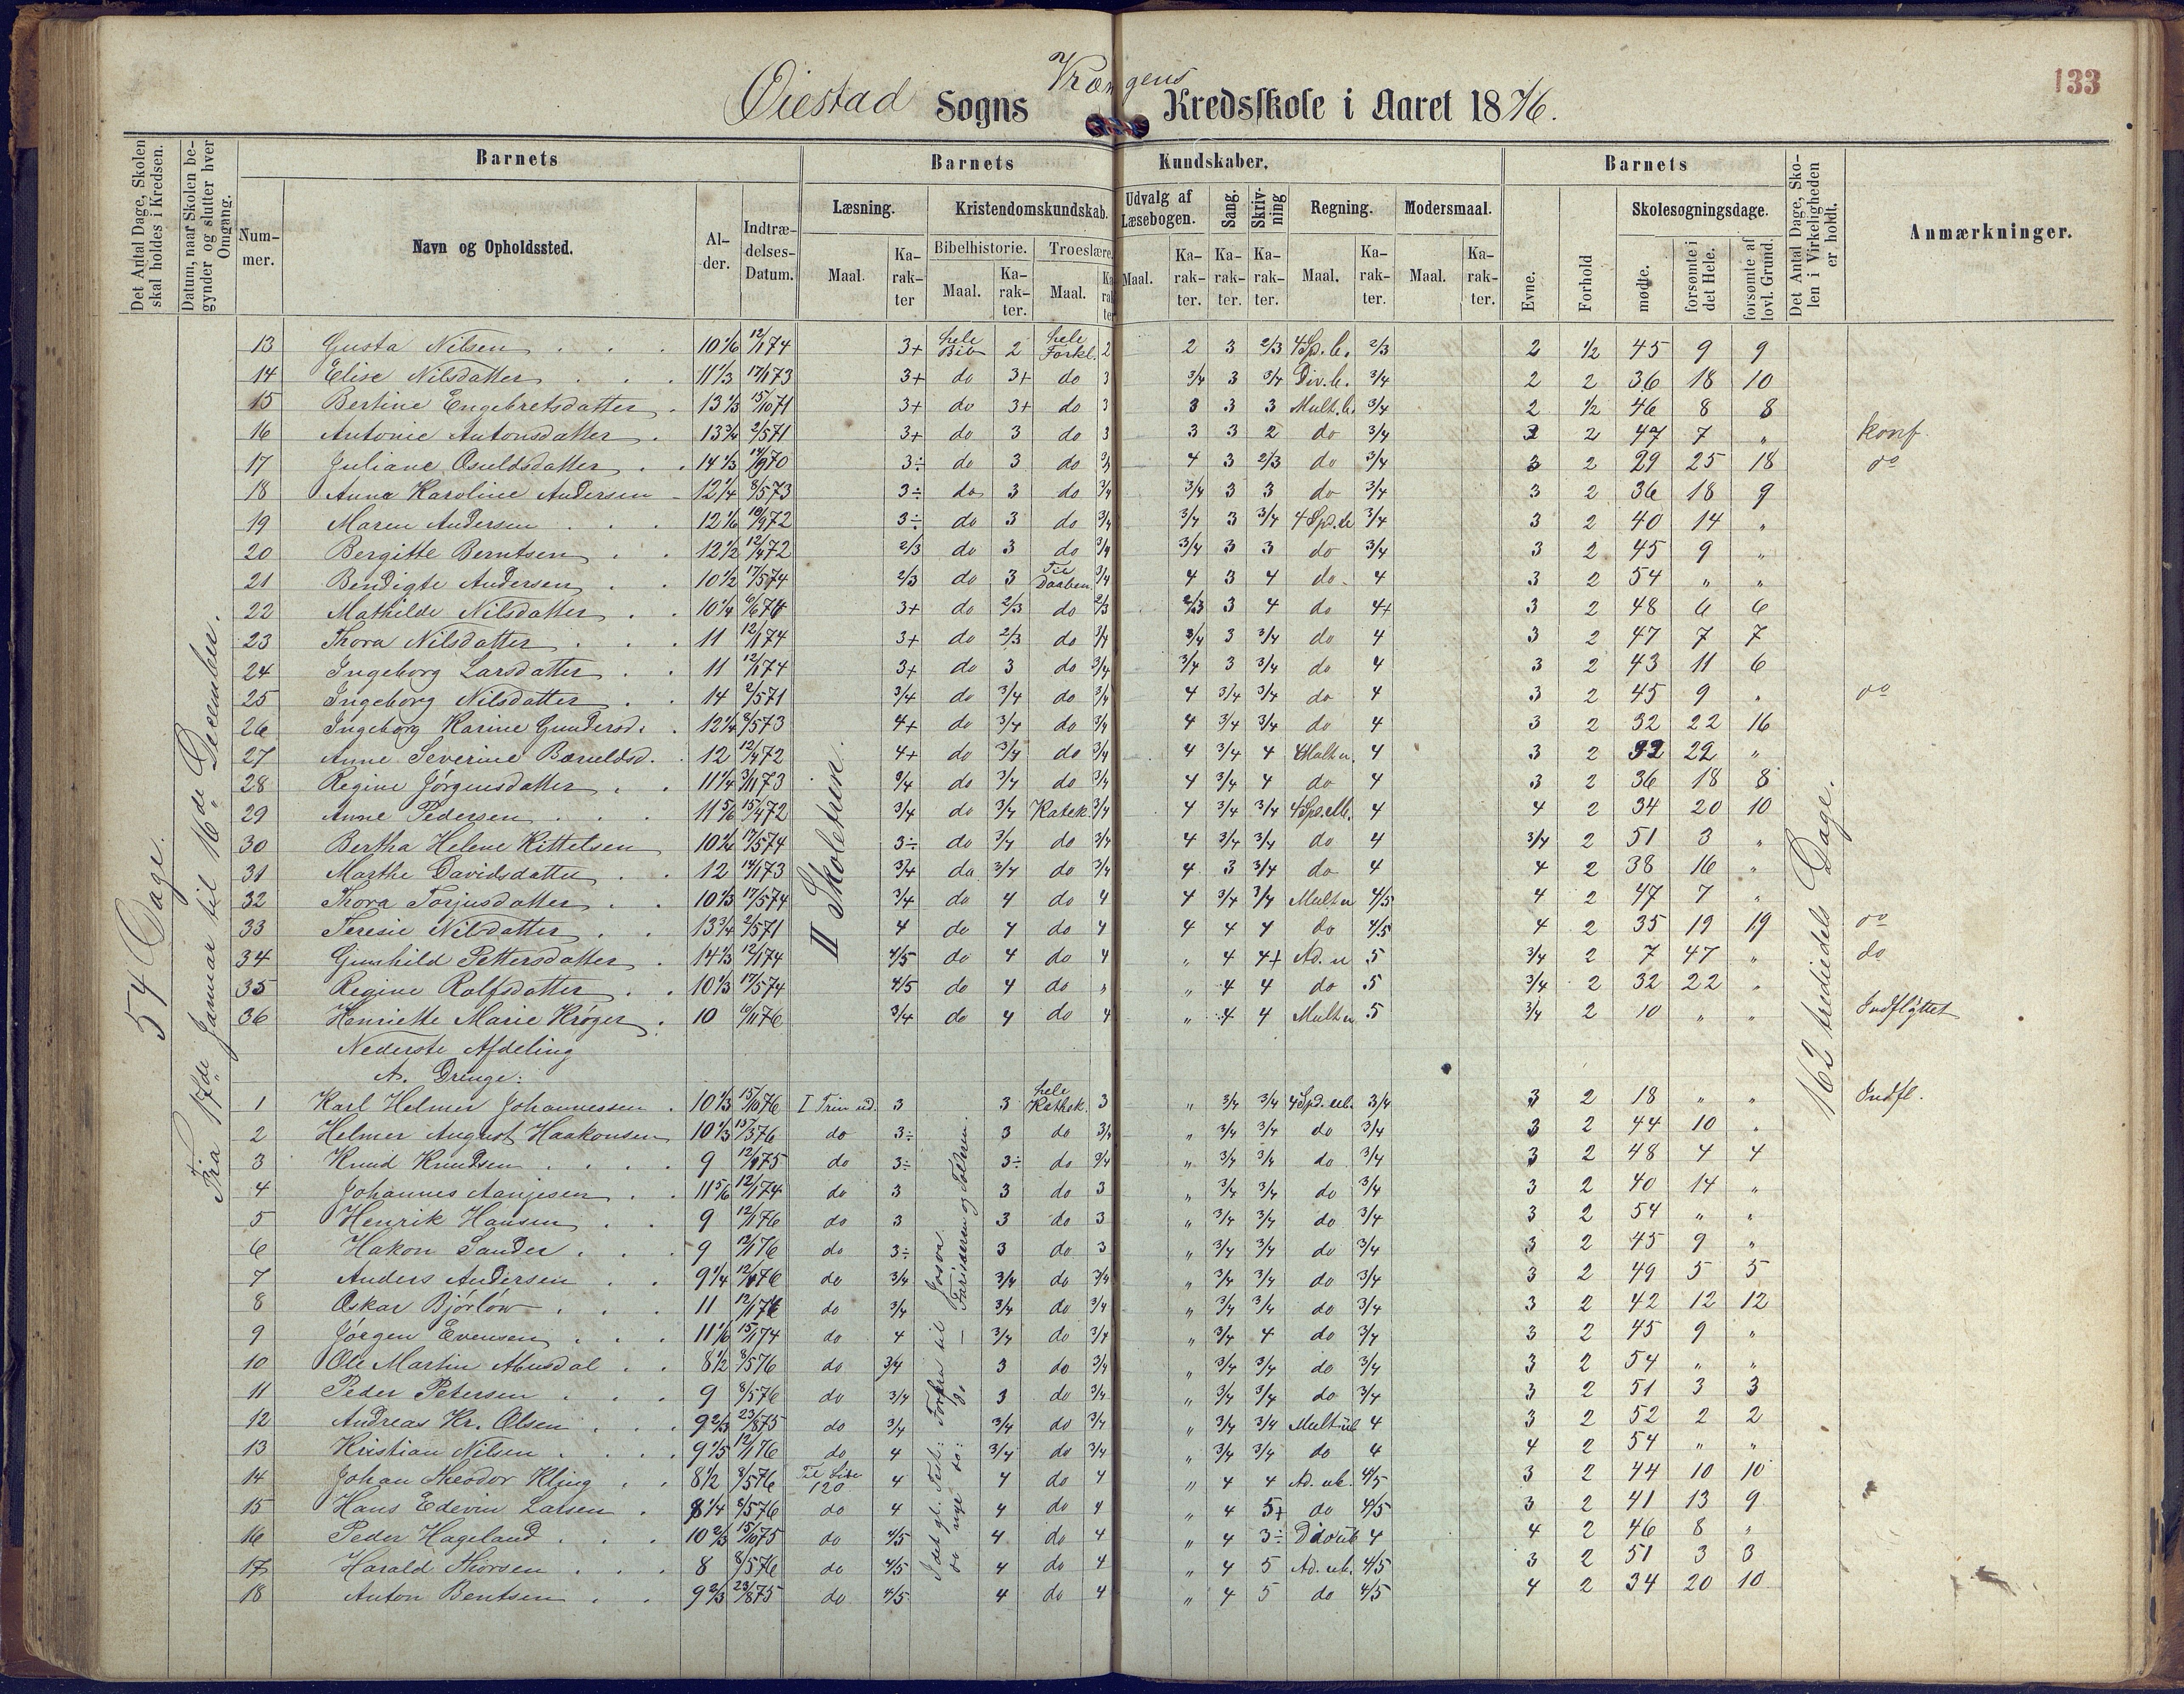 133
Øiestad Sogns Vrængens Kredsskole i Aaret 1876.
Det Antal Dage, Skolen skal holdes i Kredsen.
Datum, naar Skolen begynder og slutter hver Omgang.
Barnets
Barnets Kundskaber.
Barnets
Det Antal Dage, Skolen i Virkeligheden er holdt.
Anmærkninger.
Nummer.
Navn og Opholdssted.
Alder.
Indtrædelses-Datum.
Læsning. Kristendomskundskab. Udvalg af Læsebogen. Sang. Skrivning Regning. Modersmaal.
Evne. Forhold Skolesøgningsdage.
Bibelhistorie. Troeslære.
Maal. Karakter Maal. Karakter. Maal. Karakter Maal. Karakter. Karakter. Karakter. Maal. Karakter. Maal. Karakter.
mødte. forsømte i det Hele. forsømte af lovl. Grund.
54 Dage.
Fra 17de Januar til 16de December.
II Skoletrin.
162 trediedels Dage.
13 Gusta Nilsen 10 1/6 12/1 74 3+ hele Bib 2 hele Forkl. 2 2 3 2/3 4 Sp. b. 2/3 2 1/2 45 9 9
14 Elise Nilsdatter 11 1/3 17/1 73 3+ do 3+ do 3 3/4 3 3/4 Div. b. 3/4 2 2 36 18 10
15 Bertine Engebretsdatter 13 1/3 15/10 71 3+ do 3+ do 3 3 3 3 Mult. b. 3/4 2 1/2 46 8 8
16 Antonie Antonsdatter 13 3/4 2/5 71 3+ do 3 do 3 3 3 2 do 3/4 2 47 7 " konf.
17 Juliane Osuldsdatter 14 1/3 14/9 70 3÷ do 3 do 3/4 4 3 2/3 do 3/4 3 2 29 25 18 do
18 Anna Karoline Andersen 12 1/4 8/5 73 3÷ do 3 do 3/4 3/4 3 3 do 3/4 3 2 36 18 9
19 Maren Andersen 12 1/6 10/9 72 3÷ do 3 do 3/4 3/4 3 3/4 4 Spd. b 3/4 3 2 40 14 "
20 Bergitte Berntsen 12 1/2 12/4 72 2/3 do 3 do 3/4 3/4 3 3 do 3/4 3 2 45 9 "
21 Bendigte Andersen 10 1/2 17/5 74 2/3 do 3 Til Daaben 3/4 4 3 4 do 4 3 2 54 " "
22 Mathilde Nilsdatter 10 1/4 3+ do 2/3 do 2/3 2/3 3 4 do 4+ 3 2 48 6 6
23 Thora Nilsdatter 11 12/1 74 3+ do 2/3 do 3/4 3/4 3 3/4 do 4 3 2 47 7 7
24 Ingeborg Larsdatter 11 12/1 74 3+ do 3 do 3/4 3/4 3 3/4 do 4 3 2 43 11 6
25 Ingeborg Nilsdatter 14 2/5 71 3/4 do 3/4 do 3/4 4 3/4 3/4 do 4 3 2 45 9 " do
26 Ingeborg Karine Gundersd. 12 1/4 8/5 73 4+ do 3/4 do 3/4 4 3/4 3/4 do 4 3 2 32 22 16
27 Anne Severine 12 12/4 72 4+ do 3/4 do 3/4 4 3/4 4 4 3 2 32 22 "
28 Regine Jørgensdatter 11 1/4 3/11 73 do 3/4 do 3/4 4 3/4 4 do 4 3 2 36 18 8
29 Anne Pedersen 11 5/6 15/4 72 3/4 do 3/4 Katek. 3/4 4 3/4 3/4 4 4 2 34 20 10
30 Bertha Helene Kittelsen 10 3/4 17/5 74 3÷ do 3/4 do 3/4 4 3/4 3/4 do 4 3/4 2 51 3 "
31 Marthe Davidsdatter 12 14/1 73 3/4 do 3/4 do 3/4 4 3 3/4 do 4 4 2 38 16 "
32 Thora Torjusdatter 10 1/3 17/5 74 3/4 do 4 do 4 4 3/4 3/4 Mult u 4/5 4 2 47 7 "
33 Teresie Nilsdatter 13 3/4 2/5 71 4 do 4 do 4 4 4 4 do 4/5 4 2 35 19 19 do
34 Gunhild Pettersdatter 14 1/3 12/1 74 4/5 do 4 do 4 " 4 4+ Ad. u 5 3/4 2 7 47 " do
35 Regine Rolfsdatter 10 1/3 17/5 74 4/5 do 4 do " " 4 4 do 5 3/4 2 32 22 "
36 Henriette Marie Krøger 10 10/11 76 3/4 do 4 do 4 " 4 4 Mult u 5 3/4 2 10 " " Indflyttet
Nederste Afdeling
A. Drenge:
I det gl. Test: Forfra til Josva
do nye do: do — Farisæeren og Tolderen
1 Karl Helmer Johannessen 10 1/3 15/10 76 I Trin ud. 3 3 hele Kathek. 3 " 3/4 3/4 4 Spd. ub. 3/4 3 2 18 " " Indfl.
2 Helmer August Haakonsen 10 1/3 15/3 76 do 3÷ 3 do 3/4 " 3/4 3/4 do 3/4 3 2 44 10 "
3 Knud Knudsen 9 12/1 75 do 3÷ 3÷ do 3/4 " 3/4 3/4 do 3/4 3 2 48 4 4
4 Johannes Aanjesen 11 5/6 12/1 74 do 3 3 do 3 " 3/4 3/4 do 3/4 3 2 40 14 "
5 Henrik Hansen 9 12/1 76 do 3 3 do 3 " 3/4 3/4 do 3/4 3 2 54 " "
6 Hakon Sander 9 12/1 76 do 3÷ 3 do 3 " 3/4 3/4 do 3/4 3 2 45 9 "
7 Anders Andersen 9 1/4 12/1 76 do 3/4 3/4 do 3/4 " 3/4 3/4 do 3/4 3 2 49 5 5
8 Oskar Bjørløw 11 12/1 74 do 3/4 3/4 do 3/4 " 3/4 3/4 do 3/4 3 2 42 12 12
9 Jørgen Evensen 11 1/6 15/1 74 do 4 3/4 do 3/4 " 3/4 4 do 3/4 3 2 45 9 "
10 Ole Martin Abusdal 8 1/2 8/5 76 do 3/4 3 do 3/4 " 3/4 3/4 do 3/4 3 2 54 " "
11 Peder Petersen 9 8/5 76 do 3/4 3 do 3/4 " 3/4 3/4 do 3/4 3 2 51 3 3
12 Andreas Kr. Olsen 9 2/3 23/8 75 do 3/4 3/4 do 3/4 " 3/4 3/4 Mult ub 4 3 2 52 2 2
13 Kristian Nilsen 9 1/5 12/1 76 do 4 3/4 do 3/4 " 3/4 3/4 do 4 4 2 54 " "
14 Johan Theodor Kling 8 1/2 8/5 76 Til Side 120 4 4 do 4 " 4 4 Ad. ub. 4/5 3 2 44 10 10
15 Hans Edevin Larsen 8 1/4 8/5 76 do 4 4 do 4 " 4 5+ do 4/5 3 2 41 13 9
16 Peder Hageland 10 2/3 15/10 75 do 4/5 4 do 4 " 4 3÷ 4 4 2 46 8 "
17 Harald Thorsen 8 8/5 76 do 4/5 4 do 4 " 4 5 Ad. ub. 4/5 3 2 51 3 3
18 Anton Bentsen 9 2/3 23/8 75 do 4/5 4 do 4 " 4 5 do 4/5 4 2 34 20 10